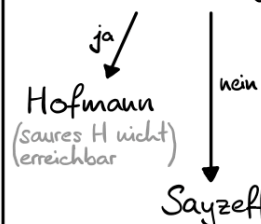 ja
nein
Hofmann
(saures H nicht
erreichbar)